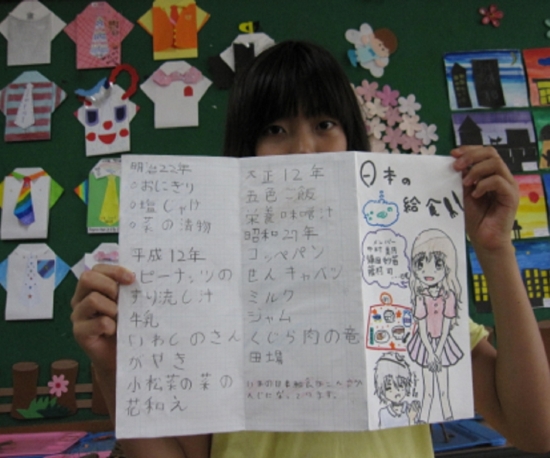 日本の
給食!!
明治22年
○おにぎり
○塩しゃけ
○菜の漬物
平成12年
ピーナッツの
すり流し汁
牛乳
いわしのさん
がやき
小松菜の菜の
花和え
大正12年
五色ご飯
栄養味噌汁
昭和27年
コッペパン
せんキャバン
ミルク
ジャム
くじら肉の竜
田揚
メンバー